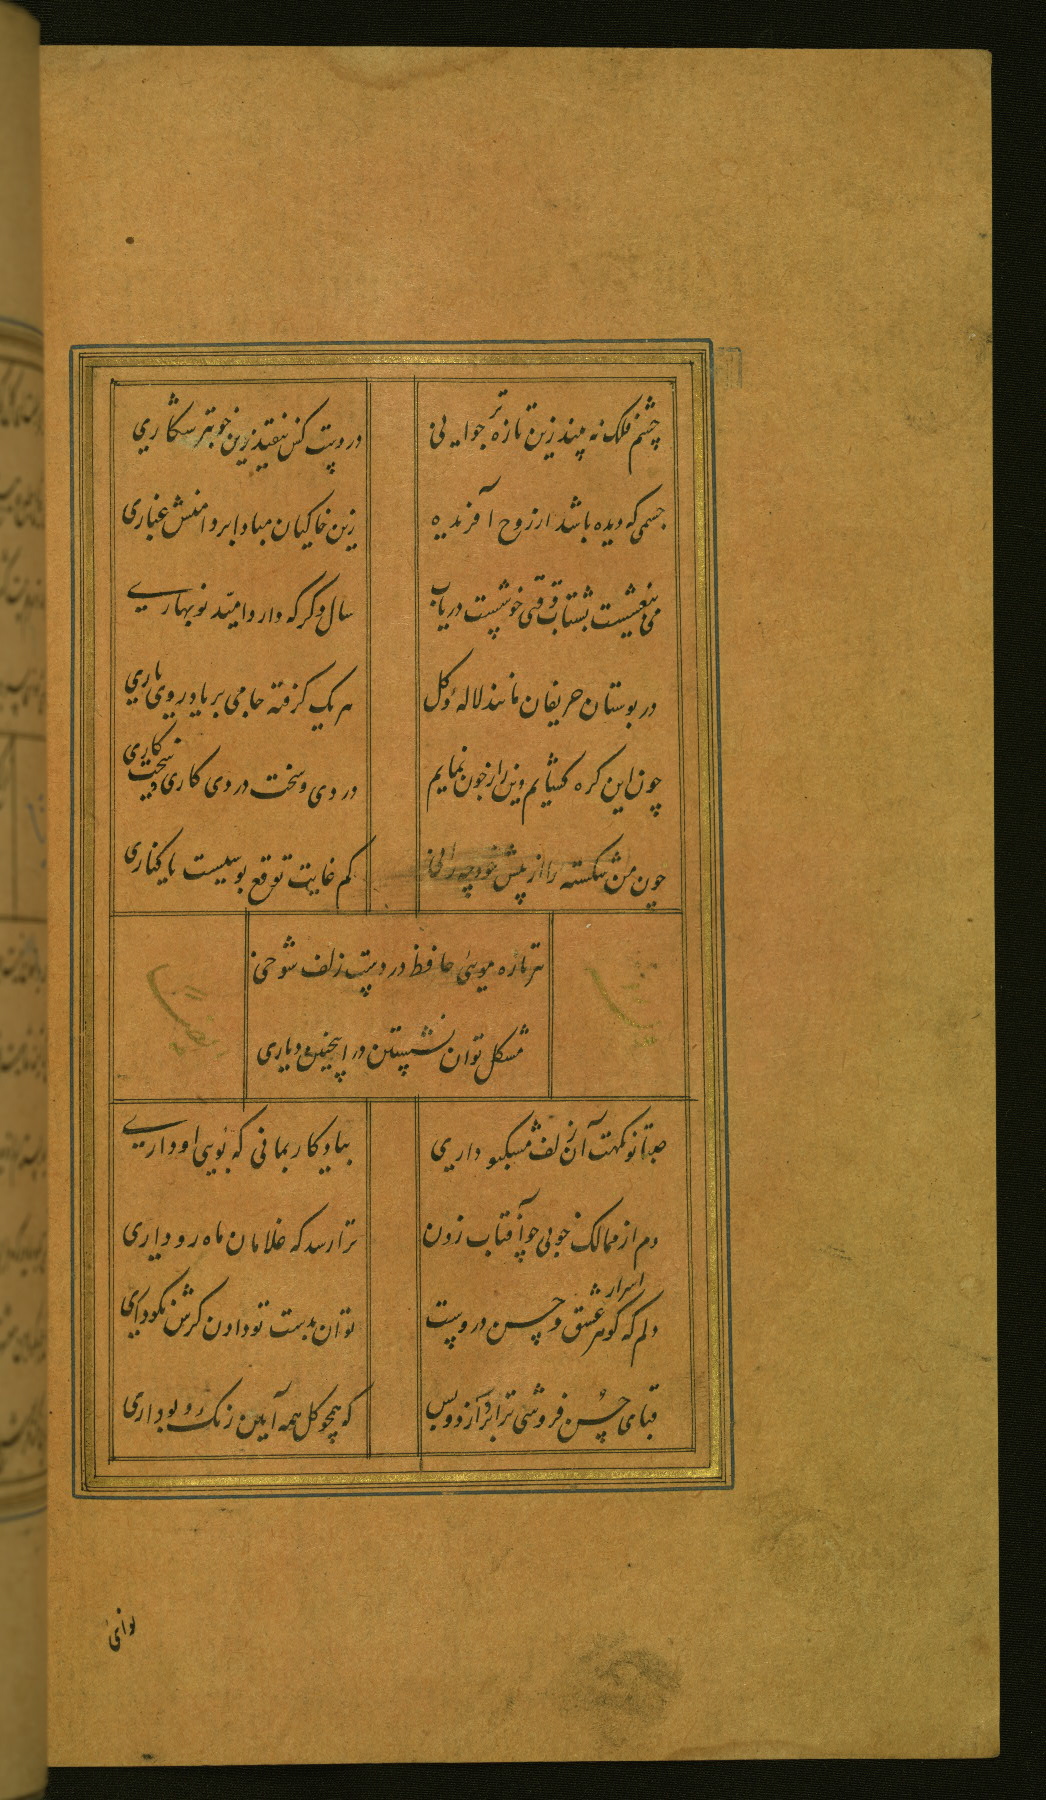 چشم فلک نه بیند زین تازه تر جوانی در دست کس نیفتد زین خوبتر نگاری
جسمی که دیده باشد از روح آفریده زین خاکیان مبادا بر دامنش غباری
می بیغشست بشتاب وقتی خوشست دریاب سال دگر که دارد امید نوبهاری
در بوستان حریفان مانند لاله و گل هر یک گرفته جامی بر یاد روی یاری
چون این گره گشایم وین راز چون نمایم دردی و سخت دردی کاری و سخت کاری
چون من شکسته را از پیش خود چه رانی کم غایت توقع بوسیست یا کناری
هر تاره موی حافظ در دست زلف شوخی
مشکل توان نشستن در اینچنین دیاری
صبا تو نکهت آن زلف مشکبو داری بیادگار بمانی که بوی او داری
دم از ممالک خوبی چو آفتاب زدن ترا رسد که غلامان ماه رو داری
دلم که گوهر اسرار عشق و حسن دروست توان بدست تو دادن گرش نکو داری
قبای حسن فروشی ترا برازد و بس که همچو گل همه آیین رنگ و بو داری
نوای